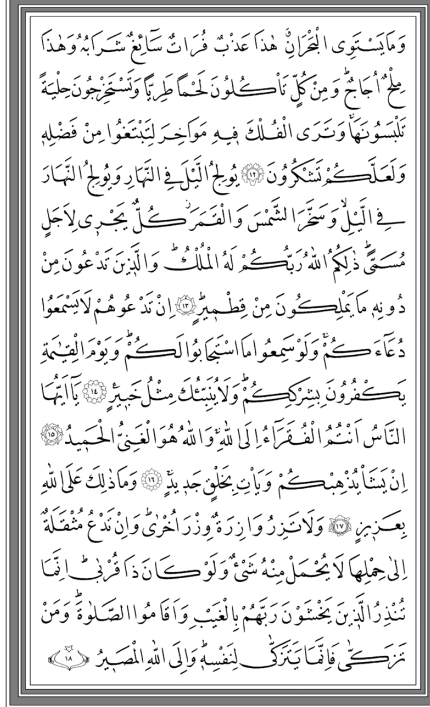 وَمَا يَسْتَوِى الْبَحْرَانِۗ هٰذَا عَذْبٌ فُرَاتٌ سَٓائِغٌ شَرَابُهُ وَهٰذَا
مِلْحٌ اُجَاجٌۜ وَمِنْ كُلٍّ تَأْكُلُونَ لَحْمًا طَرِيًّا وَتَسْتَخْرِجُونَ حِلْيَةً
تَلْبَسُونَهَاۚ وَتَرَى الْفُلْكَ فِيهِ مَوَاخِرَ لِتَبْتَغُوا مِنْ فَضْلِهِ
وَلَعَلَّكُمْ تَشْكُرُونَ ﴿١٢﴾ يُولِجُ الَّيْلَ فِى النَّهَارِ وَيُولِجُ النَّهَارَ
فِى الَّيْلِۙ وَسَخَّرَ الشَّمْسَ وَالْقَمَرَۘ كُلٌّ يَجْرِى لِاَجَلٍ
مُسَمًّىۜ ذٰلِكُمُ اللّٰهُ رَبُّكُمْ لَهُ الْمُلْكُۜ وَالَّذِينَ تَدْعُونَ مِنْ
دُونِهِ مَا يَمْلِكُونَ مِنْ قِطْمِيرٍۜ ﴿١٣﴾ اِنْ تَدْعُوهُمْ لَا يَسْمَعُوا
دُعَٓاءَكُمْۚ وَلَوْ سَمِعُوا مَا اسْتَجَابُوا لَكُمْۜ وَيَوْمَ الْقِيٰمَةِ
يَكْفُرُونَ بِشِرْكِكُمْۜ وَلَا يُنَبِّئُكَ مِثْلُ خَبِيرٍ۟ ﴿١٤﴾ يَٓا اَيُّهَا
النَّاسُ اَنْتُمُ الْفُقَرَٓاءُ اِلَى اللّٰهِۚ وَاللّٰهُ هُوَ الْغَنِىُّ الْحَمِيدُ ﴿١٥﴾
اِنْ يَشَأْ يُذْهِبْكُمْ وَيَأْتِ بِخَلْقٍ جَدِيدٍۚ ﴿١٦﴾ وَمَا ذٰلِكَ عَلَى اللّٰهِ
بِعَزِيزٍ ﴿١٧﴾ وَلَا تَزِرُ وَازِرَةٌ وِزْرَ اُخْرٰىۜ وَاِنْ تَدْعُ مُثْقَلَةٌ
اِلٰى حِمْلِهَا لَا يُحْمَلْ مِنْهُ شَىْءٌ وَلَوْ كَانَ ذَا قُرْبٰىۜ اِنَّمَا
تُنْذِرُ الَّذِينَ يَخْشَوْنَ رَبَّهُمْ بِالْغَيْبِ وَاَقَامُوا الصَّلٰوةَۜ وَمَنْ
تَزَكّٰى فَاِنَّمَا يَتَزَكّٰى لِنَفْسِهِۜ وَاِلَى اللّٰهِ الْمَصِيرُ ﴿١٨﴾